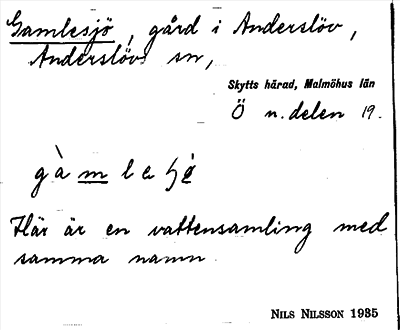 Gamlesjö, gård i Anderslöv,
Anderslövs sn,
Skytts härad, Malmöhus län
Ö n. delen 19.
gà m l e
Här är en vattensamling med
samma namn
NILS NILSSON 1935